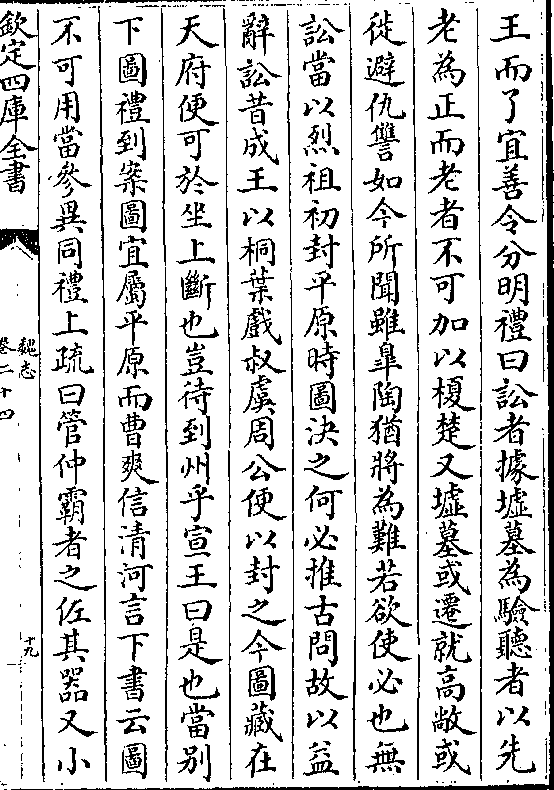 王而了宜善令分明禮曰訟者據墟墓為驗聽者以先
老為正而老者不可加以榎楚又墟墓或遷就高敞或
徙避仇讐如今所聞雖臯陶猶將為難若欲使必也無
訟當以烈祖初封平原時圖決之何必推古問故以益
辭訟昔成王以桐葉戲叔虞周公便以封之今圖藏在
天府便可於坐上斷也豈待到州乎宣王曰是也當别
下圖禮到案圖宜屬平原而曹爽信清河言下書云圖
不可用當參異同禮上疏曰管仲霸者之佐其器又小
欽定四庫全書
魏志
卷二十四
十九